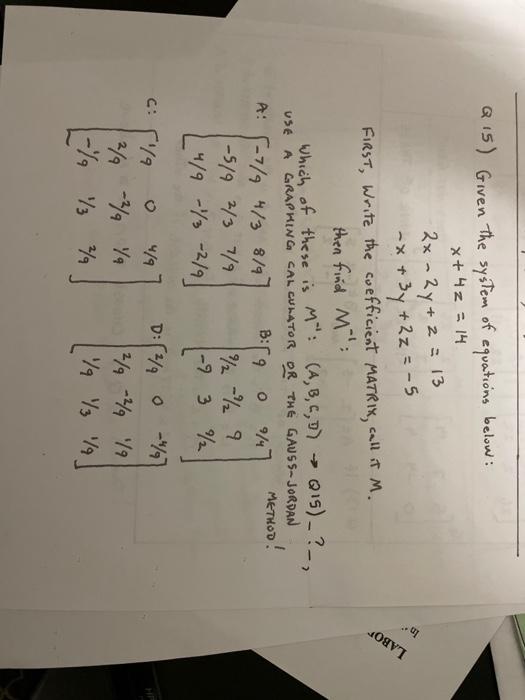 Q 15) Given the system of equations below:
x + 4z = 14
2x - 2y + z = 13
-x + 3y + 2z = -5
FIRST, Write the coefficient MATRIX, call it M.
then find M⁻¹:
Which of these is M⁻¹: (A, B, C, D) → Q15) _?_,
USE A GRAPHING CALCULATOR OR THE GAUSS-JORDAN
METHOD!
A: [-7/9 4/3 8/9
-5/9 2/3 7/9
4/9 -1/3 -2/9]
B: [9 0 9/4
9/2 -9/2 9
-9 3 9/2]
C: [1/9 0 4/9
2/9 -2/9 1/9
-1/9 1/3 2/9]
D: [2/9 0 -4/9
2/9 -2/9 1/9
1/9 1/3 1/9]
LABO